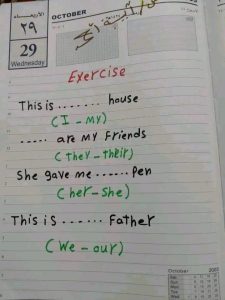 الأربعاء
OCTOBER
٢٩
29
Wednesday
Exercise
This is ....... house
(I - my)
...... are my friends
(they - their)
She gave me ...... pen
(her - she)
This is ...... Father
(we - our)
October